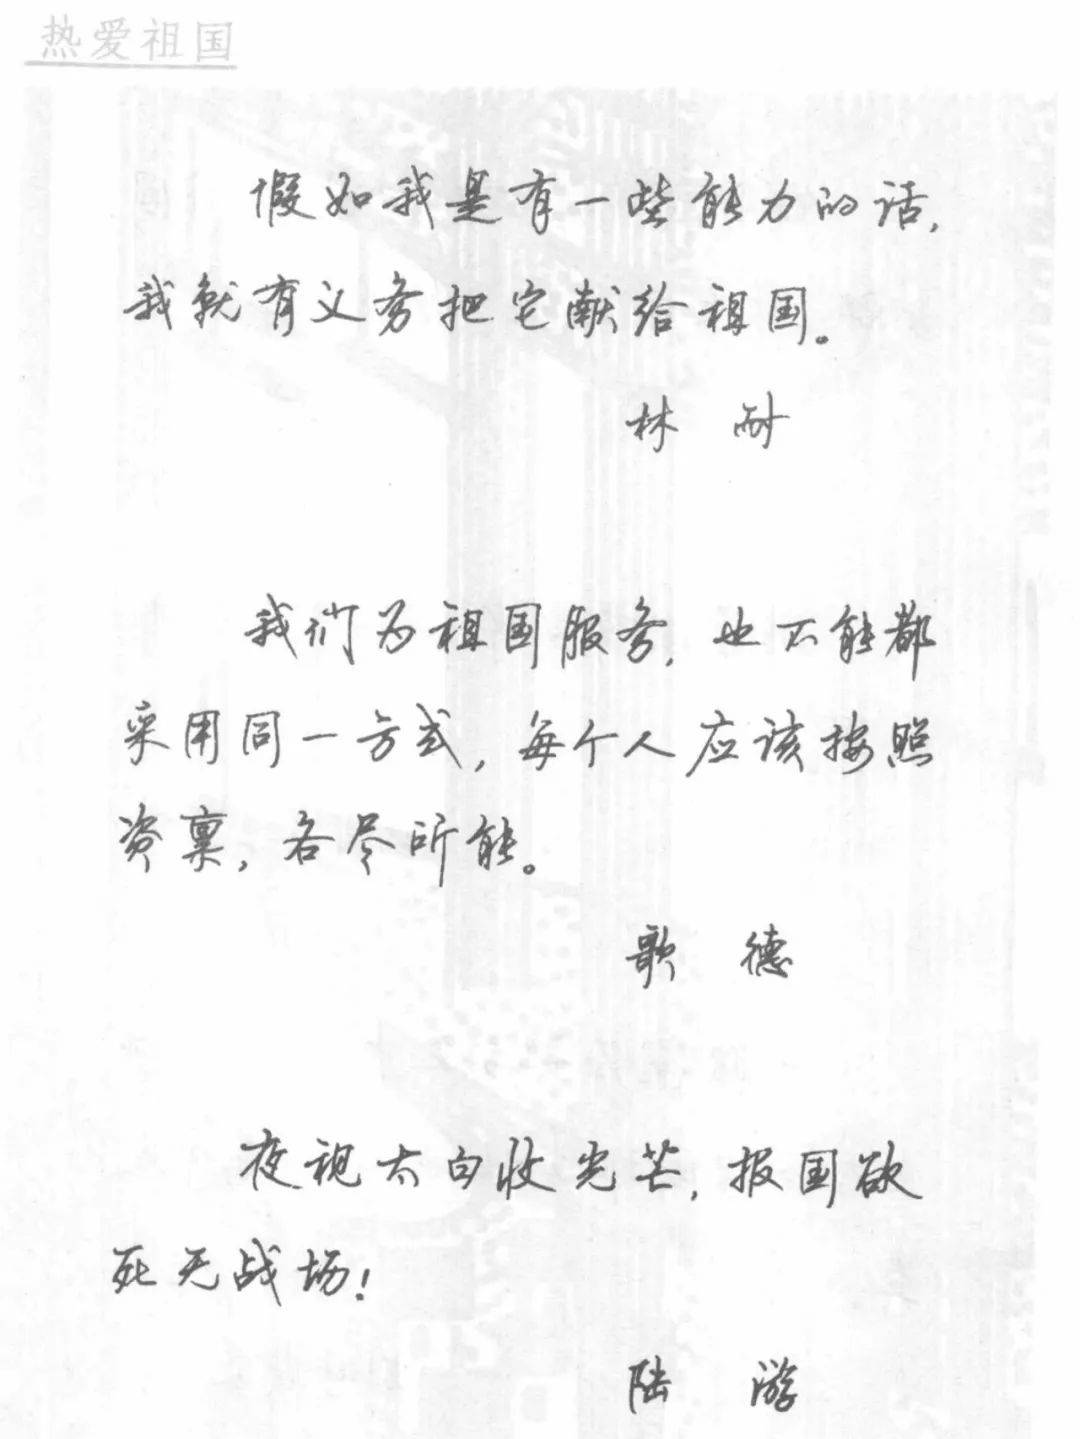 热爱祖国
假如我是有一些能力的话，
我就有义务把它献给祖国。
林 耐
我们为祖国服务，也不能都
采用同一方式，每个人应该按照
资禀，各尽所能。
歌 德
夜视太白收光芒，报国欲
死无战场！
陆 游